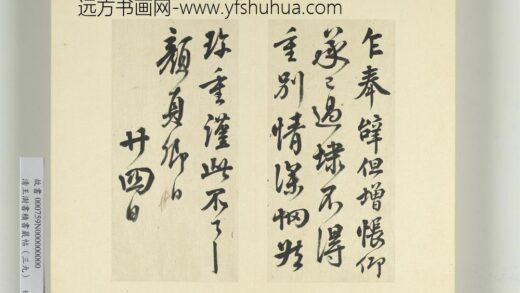 远方书画网-www.yfshuhua.com
乍奉辞但增怅仰
承已过埭不得
重别情深惘然
珍重谨此不一一
颜真卿白
廿四日
故書 000759N000000000
清王澍書積書巖帖(三九)